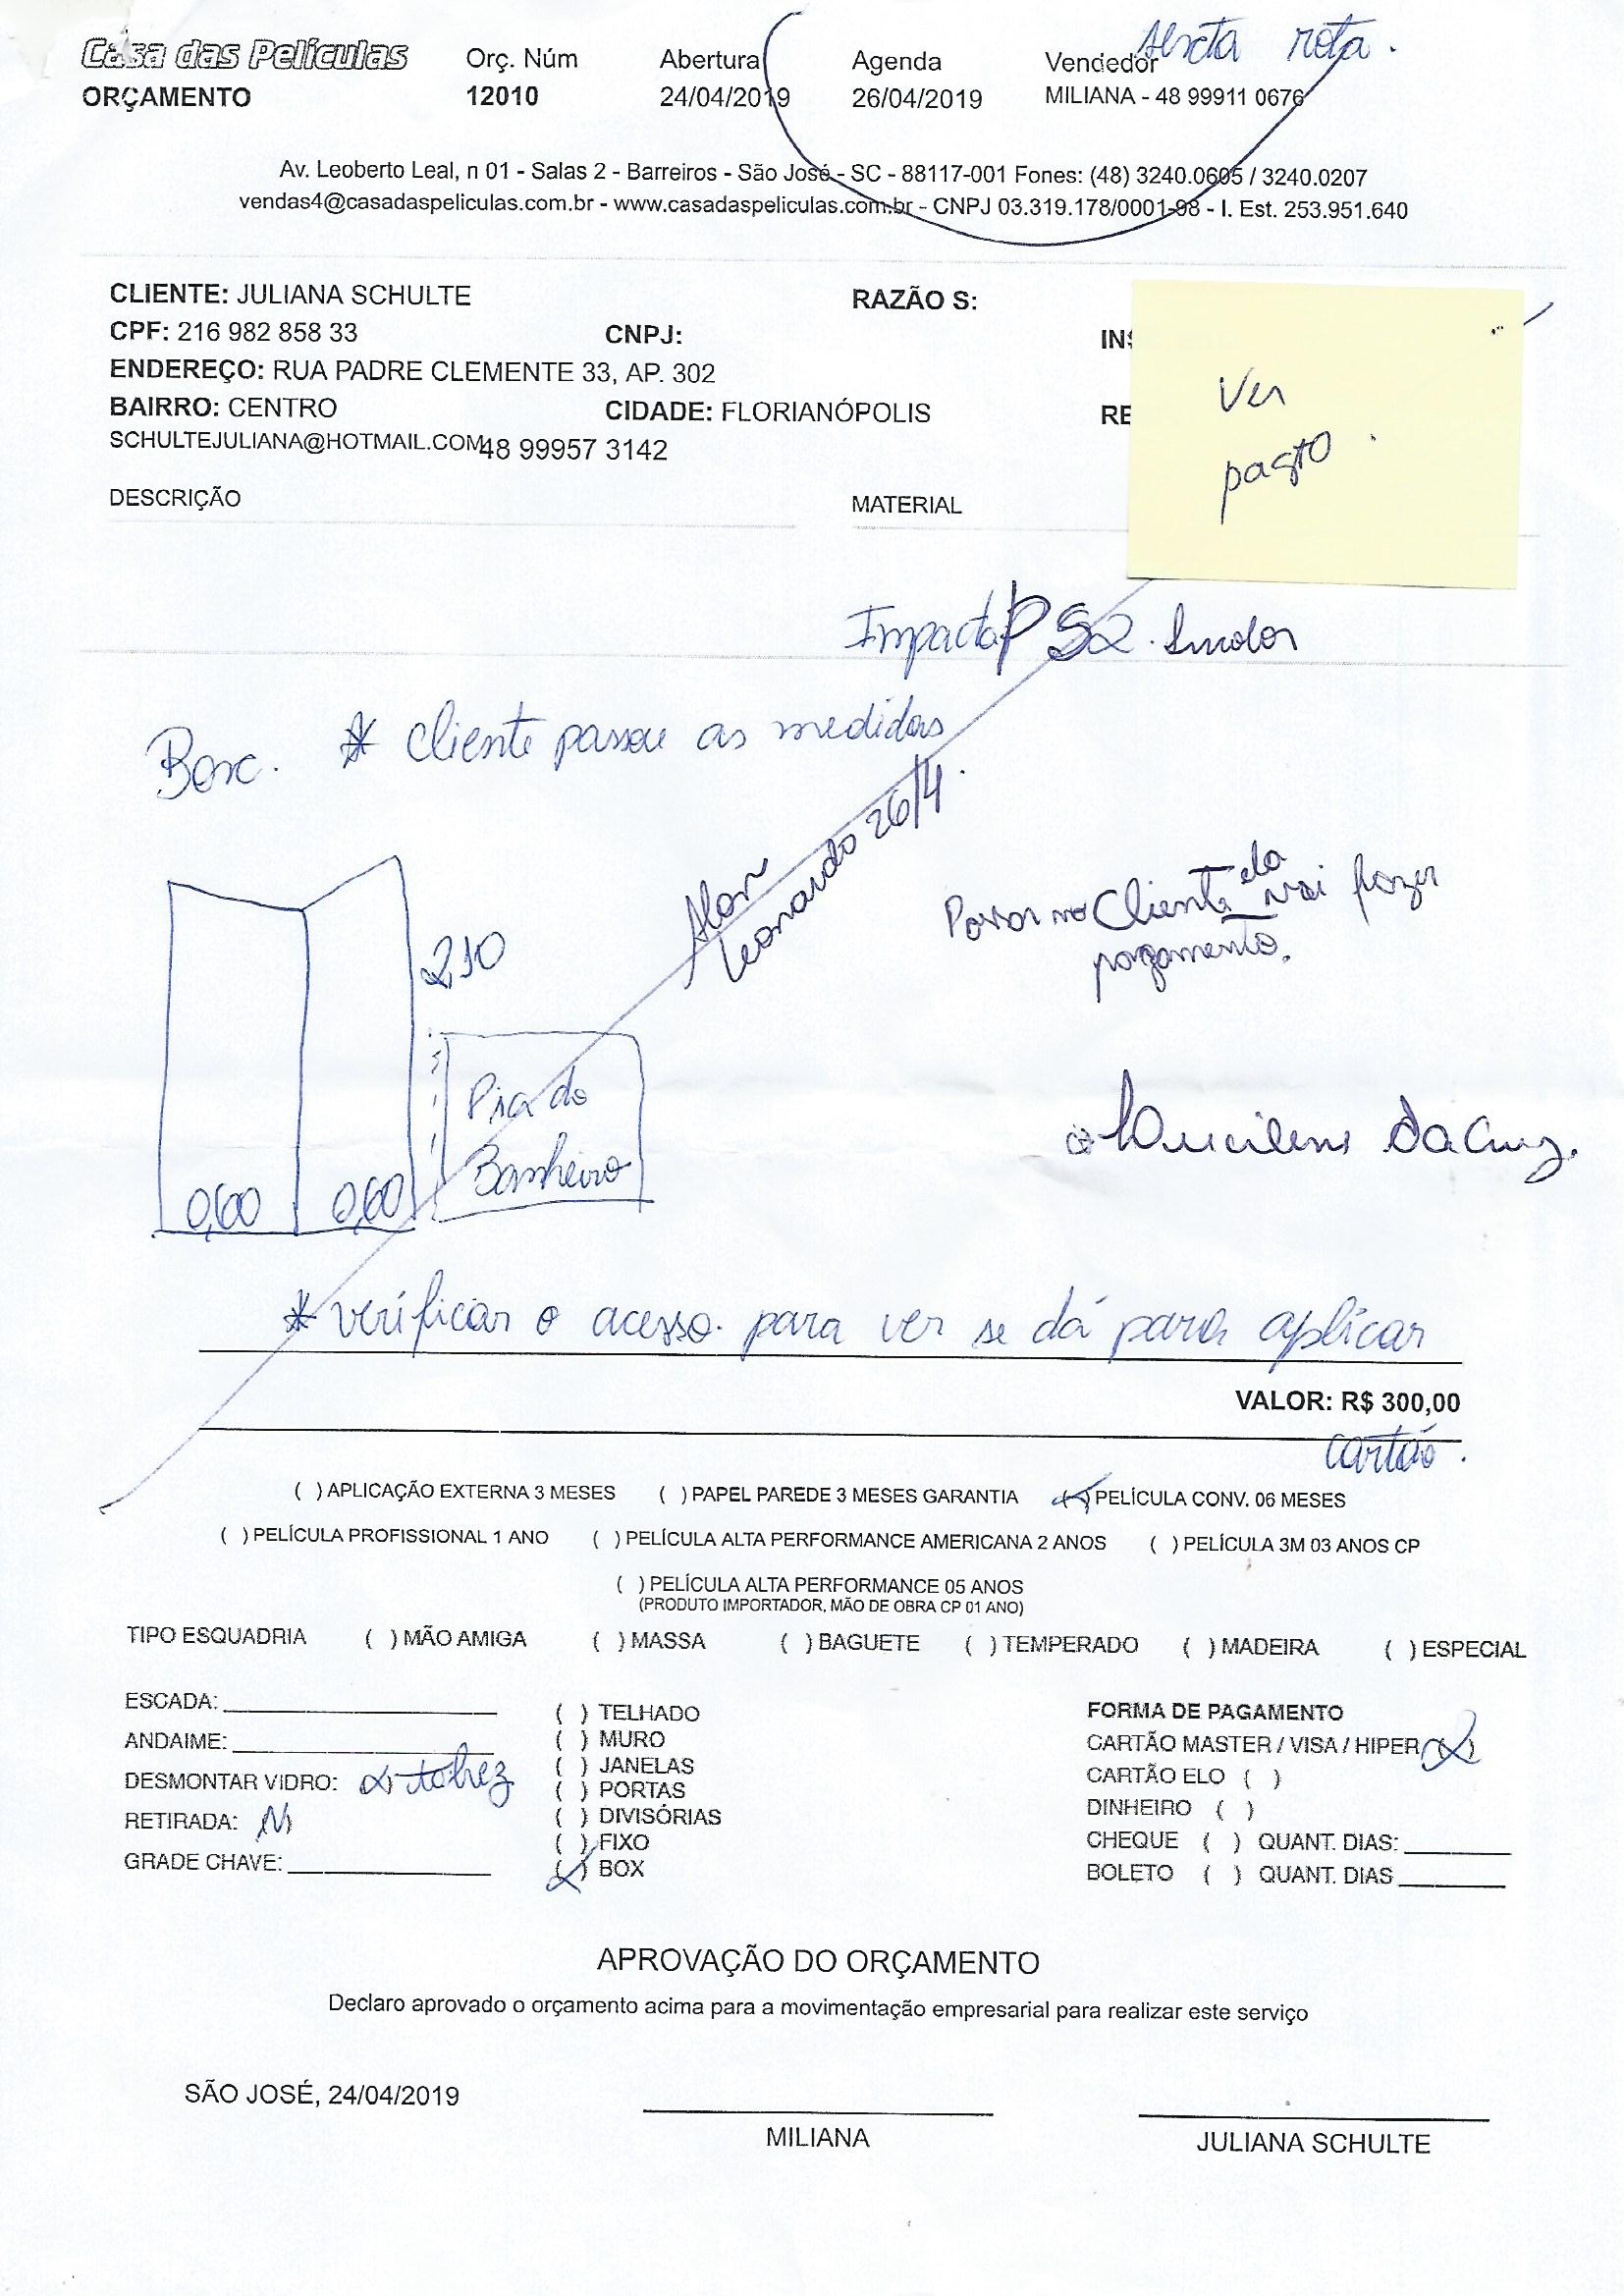 sexta rota.
Casa das Películas
ORÇAMENTO
Orç. Núm
12010
Abertura
24/04/2019
Agenda
26/04/2019
Vendedor
MILIANA - 48 99911 0676
Av. Leoberto Leal, n 01 - Salas 2 - Barreiros - São José - SC - 88117-001 Fones: (48) 3240.0605 / 3240.0207
vendas4@casadaspeliculas.com.br - www.casadaspeliculas.com.br - CNPJ 03.319.178/0001-98 - I. Est. 253.951.640
CLIENTE: JULIANA SCHULTE
RAZÃO S:
CPF: 216 982 858 33
CNPJ:
INS
ENDEREÇO: RUA PADRE CLEMENTE 33, AP. 302
BAIRRO: CENTRO
CIDADE: FLORIANÓPOLIS
RE
SCHULTEJULIANA@HOTMAIL.COM 48 99957 3142
Ver
pagto.
DESCRIÇÃO
MATERIAL
PS2. Incolor
Box. * Cliente passou as medidas
Alan
Leonardo 26/4.
Cliente ela vai fazer
pagamento.
210
Pia do
Banheiro
0,60 0,60
da Cruz.
* verificar o acesso. para ver se dá para aplicar
VALOR: R$ 300,00
cartão.
( ) APLICAÇÃO EXTERNA 3 MESES ( ) PAPEL PAREDE 3 MESES GARANTIA (X) PELÍCULA CONV. 06 MESES
( ) PELÍCULA PROFISSIONAL 1 ANO ( ) PELÍCULA ALTA PERFORMANCE AMERICANA 2 ANOS ( ) PELÍCULA 3M 03 ANOS CP
( ) PELÍCULA ALTA PERFORMANCE 05 ANOS
(PRODUTO IMPORTADOR, MÃO DE OBRA CP 01 ANO)
TIPO ESQUADRIA ( ) MÃO AMIGA ( ) MASSA ( ) BAGUETE ( ) TEMPERADO ( ) MADEIRA ( ) ESPECIAL
ESCADA:
ANDAIME:
DESMONTAR VIDRO: (X) talvez
RETIRADA: N
GRADE CHAVE:
( ) TELHADO
( ) MURO
( ) JANELAS
( ) PORTAS
( ) DIVISÓRIAS
( ) FIXO
(X) BOX
FORMA DE PAGAMENTO
CARTÃO MASTER / VISA / HIPER (X)
CARTÃO ELO ( )
DINHEIRO ( )
CHEQUE ( ) QUANT. DIAS:
BOLETO ( ) QUANT. DIAS
APROVAÇÃO DO ORÇAMENTO
Declaro aprovado o orçamento acima para a movimentação empresarial para realizar este serviço
SÃO JOSÉ, 24/04/2019
MILIANA
JULIANA SCHULTE